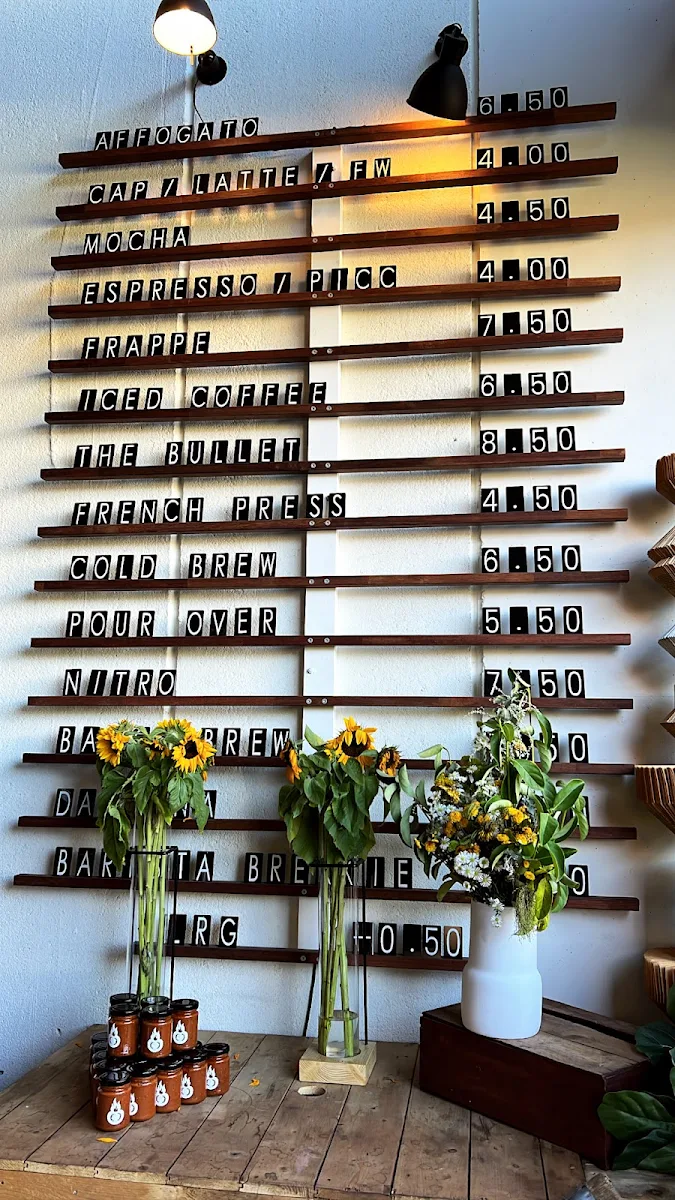 AFFOGATO 6.50
CAP / LATTE / FW 4.00
MOCHA 4.50
ESPRESSO / PICC 4.00
FRAPPE 7.50
ICED COFFEE 6.50
THE BULLET 8.50
FRENCH PRESS 4.50
COLD BREW 6.50
POUR OVER 5.50
NITRO 7.50
BREW